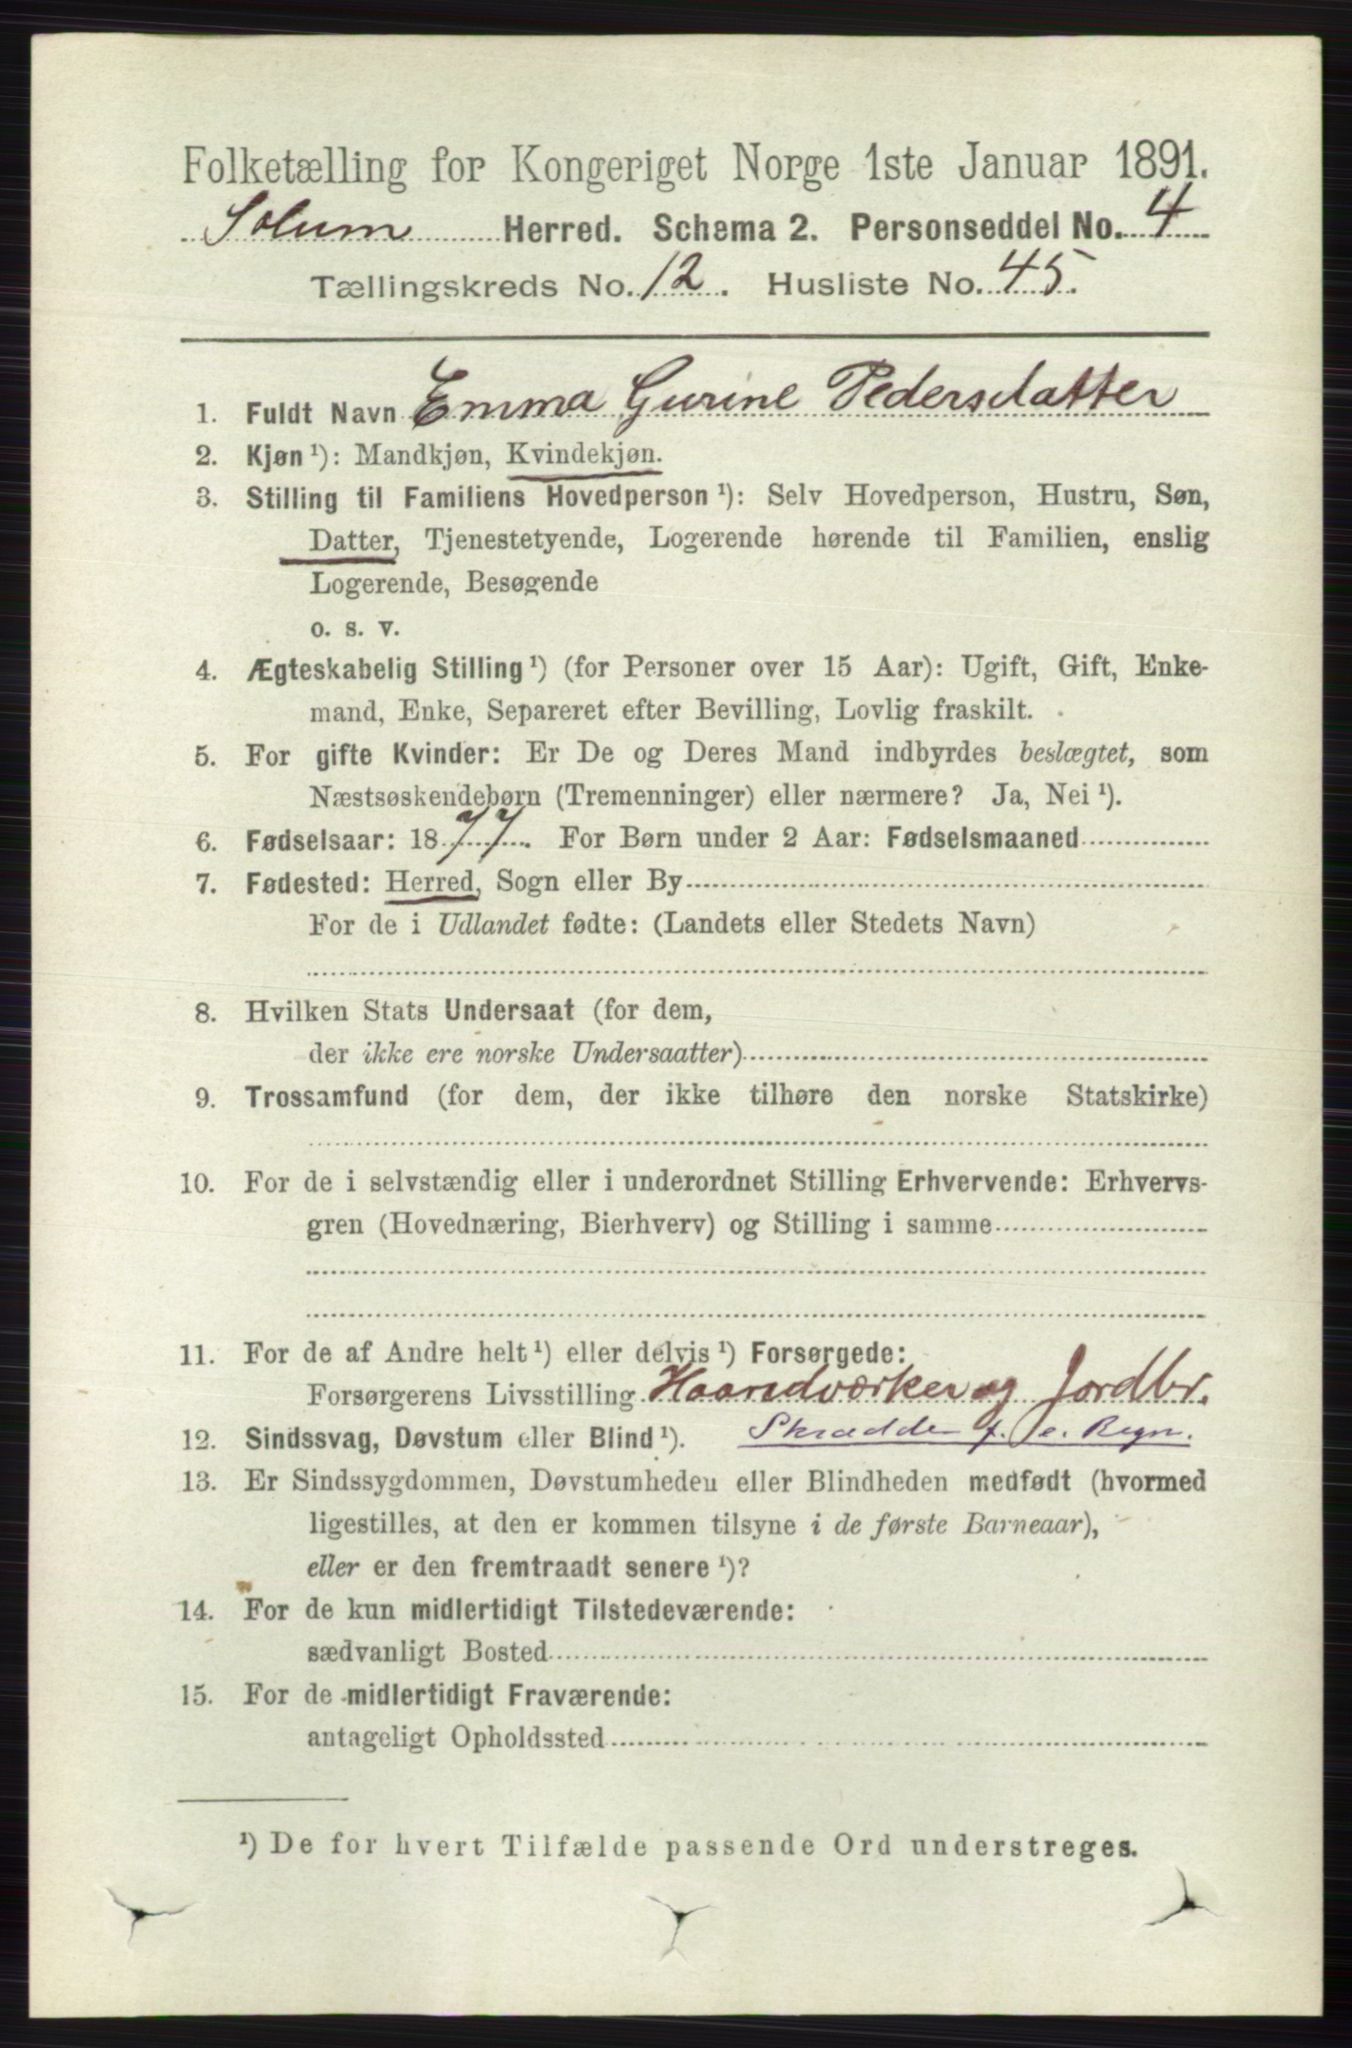 Folketælling for Kongeriget Norge 1ste Januar 1891.
Solum Herred. Schema 2. Personseddel No. 4
Tællingskreds No. 12. Husliste No. 45.
1. Fuldt Navn Emma Gurine Pedersdatter
2. Kjøn ¹): Mandkjøn, Kvindekjøn.
3. Stilling til Familiens Hovedperson ¹): Selv Hovedperson, Hustru, Søn,
Datter, Tjenestetyende, Logerende hørende til Familien, enslig
Logerende, Besøgende
o. s. v.
4. Ægteskabelig Stilling ¹) (for Personer over 15 Aar): Ugift, Gift, Enke-
mand, Enke, Separeret efter Bevilling, Lovlig fraskilt.
5. For gifte Kvinder: Er De og Deres Mand indbyrdes beslægtet, som
Næstsøskendebørn (Tremenninger) eller nærmere? Ja, Nei ¹).
6. Fødselsaar: 1877. For Børn under 2 Aar: Fødselsmaaned
7. Fødested: Herred, Sogn eller By
For de i Udlandet fødte: (Landets eller Stedets Navn)
8. Hvilken Stats Undersaat (for dem,
der ikke ere norske Undersaatter)
9. Trossamfund (for dem, der ikke tilhøre den norske Statskirke)
10. For de i selvstændig eller i underordnet Stilling Erhvervende: Erhvervs-
gren (Hovednæring, Bierhverv) og Stilling i samme
11. For de af Andre helt ¹) eller delvis ¹) Forsørgede:
Forsørgerens Livsstilling Haandværker og Jordbr.
12. Sindssvag, Døvstum eller Blind ¹). Skrædder f. e. Regn.
13. Er Sindssygdommen, Døvstumheden eller Blindheden medfødt (hvormed
ligestilles, at den er kommen tilsyne i de første Barneaar),
eller er den fremtraadt senere ¹)?
14. For de kun midlertidigt Tilstedeværende:
sædvanligt Bosted
15. For de midlertidigt Fraværende:
antageligt Opholdssted
¹) De for hvert Tilfælde passende Ord understreges.